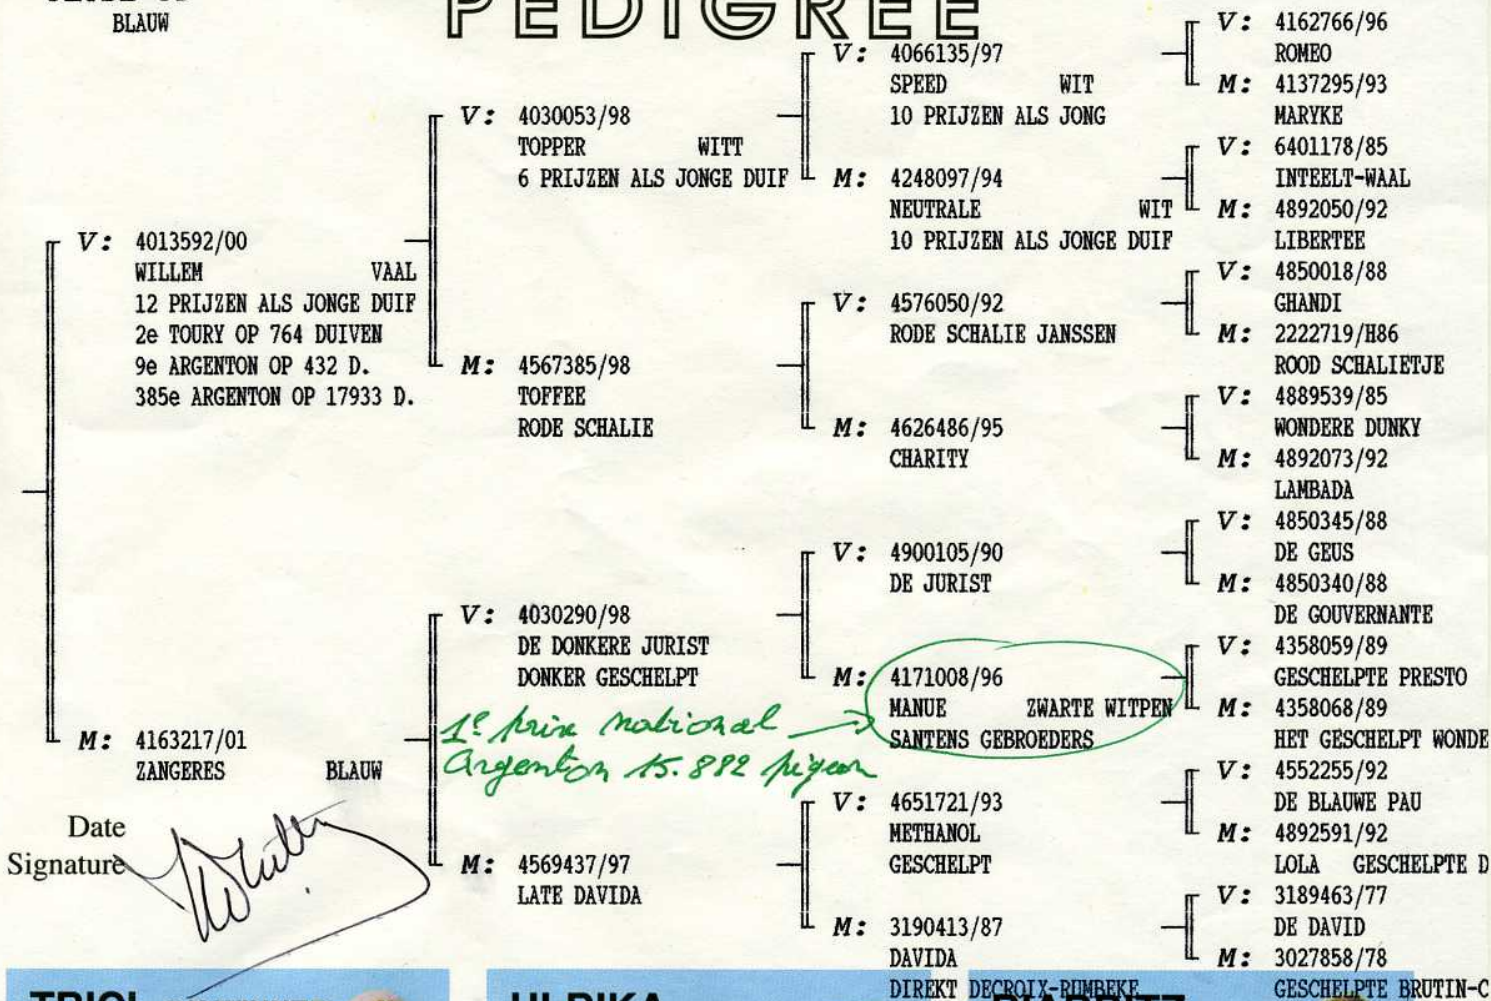 BLAUW
PEDIGREE
V: 4013592/00
WILLEM VAAL
12 PRIJZEN ALS JONGE DUIF
2e TOURY OP 764 DUIVEN
9e ARGENTON OP 432 D.
385e ARGENTON OP 17933 D.
M: 4163217/01
ZANGERES BLAUW
Date
Signature
V: 4030053/98
TOPPER WITT
6 PRIJZEN ALS JONGE DUIF
M: 4567385/98
TOFFEE
RODE SCHALIE
V: 4030290/98
DE DONKERE JURIST
DONKER GESCHELPT
1e prix national
Argenton 15.882 pigeon
M: 4569437/97
LATE DAVIDA
V: 4066135/97
SPEED WIT
10 PRIJZEN ALS JONG
M: 4248097/94
NEUTRALE WIT
10 PRIJZEN ALS JONGE DUIF
V: 4576050/92
RODE SCHALIE JANSSEN
M: 4626486/95
CHARITY
V: 4900105/90
DE JURIST
M: 4171008/96
MANUE ZWARTE WITPEN
SANTENS GEBROEDERS
V: 4651721/93
METHANOL
GESCHELPT
M: 3190413/87
DAVIDA
DIREKT DECROIX-RUMBEKE
V: 4162766/96
ROMEO
M: 4137295/93
MARYKE
V: 6401178/85
INTEELT-WAAL
M: 4892050/92
LIBERTEE
V: 4850018/88
GHANDI
M: 2222719/H86
ROOD SCHALIETJE
V: 4889539/85
WONDERE DUNKY
M: 4892073/92
LAMBADA
V: 4850345/88
DE GEUS
M: 4850340/88
DE GOUVERNANTE
V: 4358059/89
GESCHELPTE PRESTO
M: 4358068/89
HET GESCHELPT WONDE
V: 4552255/92
DE BLAUWE PAU
M: 4892591/92
LOLA GESCHELPTE D
V: 3189463/77
DE DAVID
M: 3027858/78
GESCHELPTE BRUTIN-C